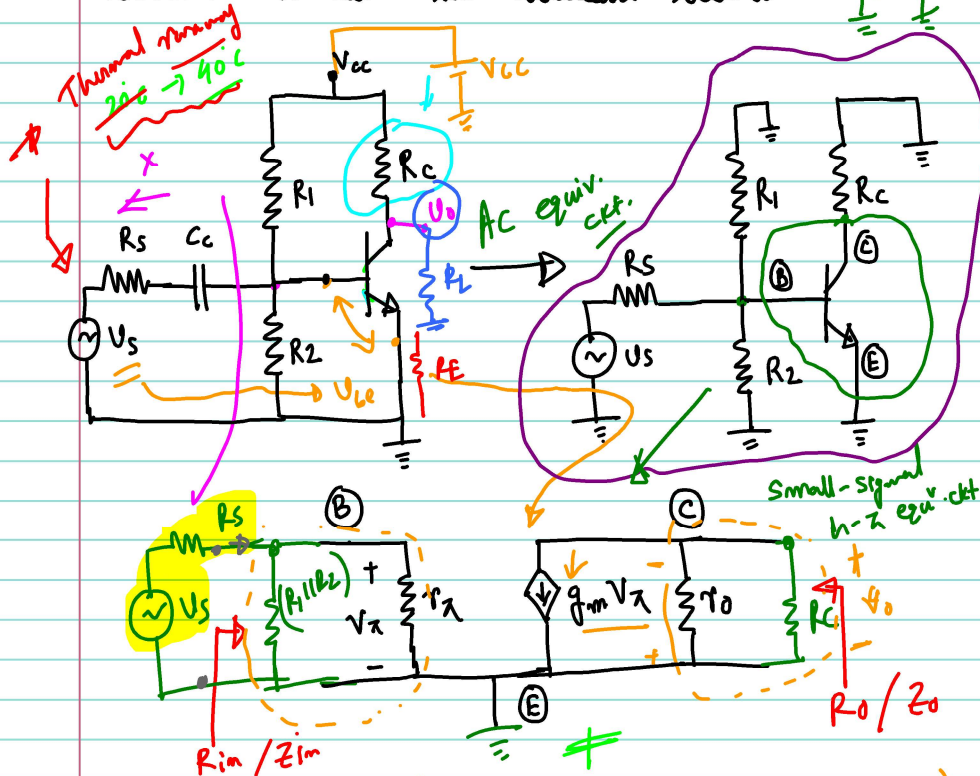 Thermal runaway
20°C → 40°C
Vcc
VCC
x
R1
Rc
Vo
AC equiv. ckt.
RL
Rs
Cc
Vs
R2
RE
Vbe
R1
Rc
C
Rs
B
Vs
R2
E
small-signal
h-π equiv. ckt
Rs
B
C
Vs
(R1||R2)
+
Vπ
-
rπ
gm Vπ
-
+
ro
Rc
+
Vo
-
E
Rin / Zin
Ro / Zo